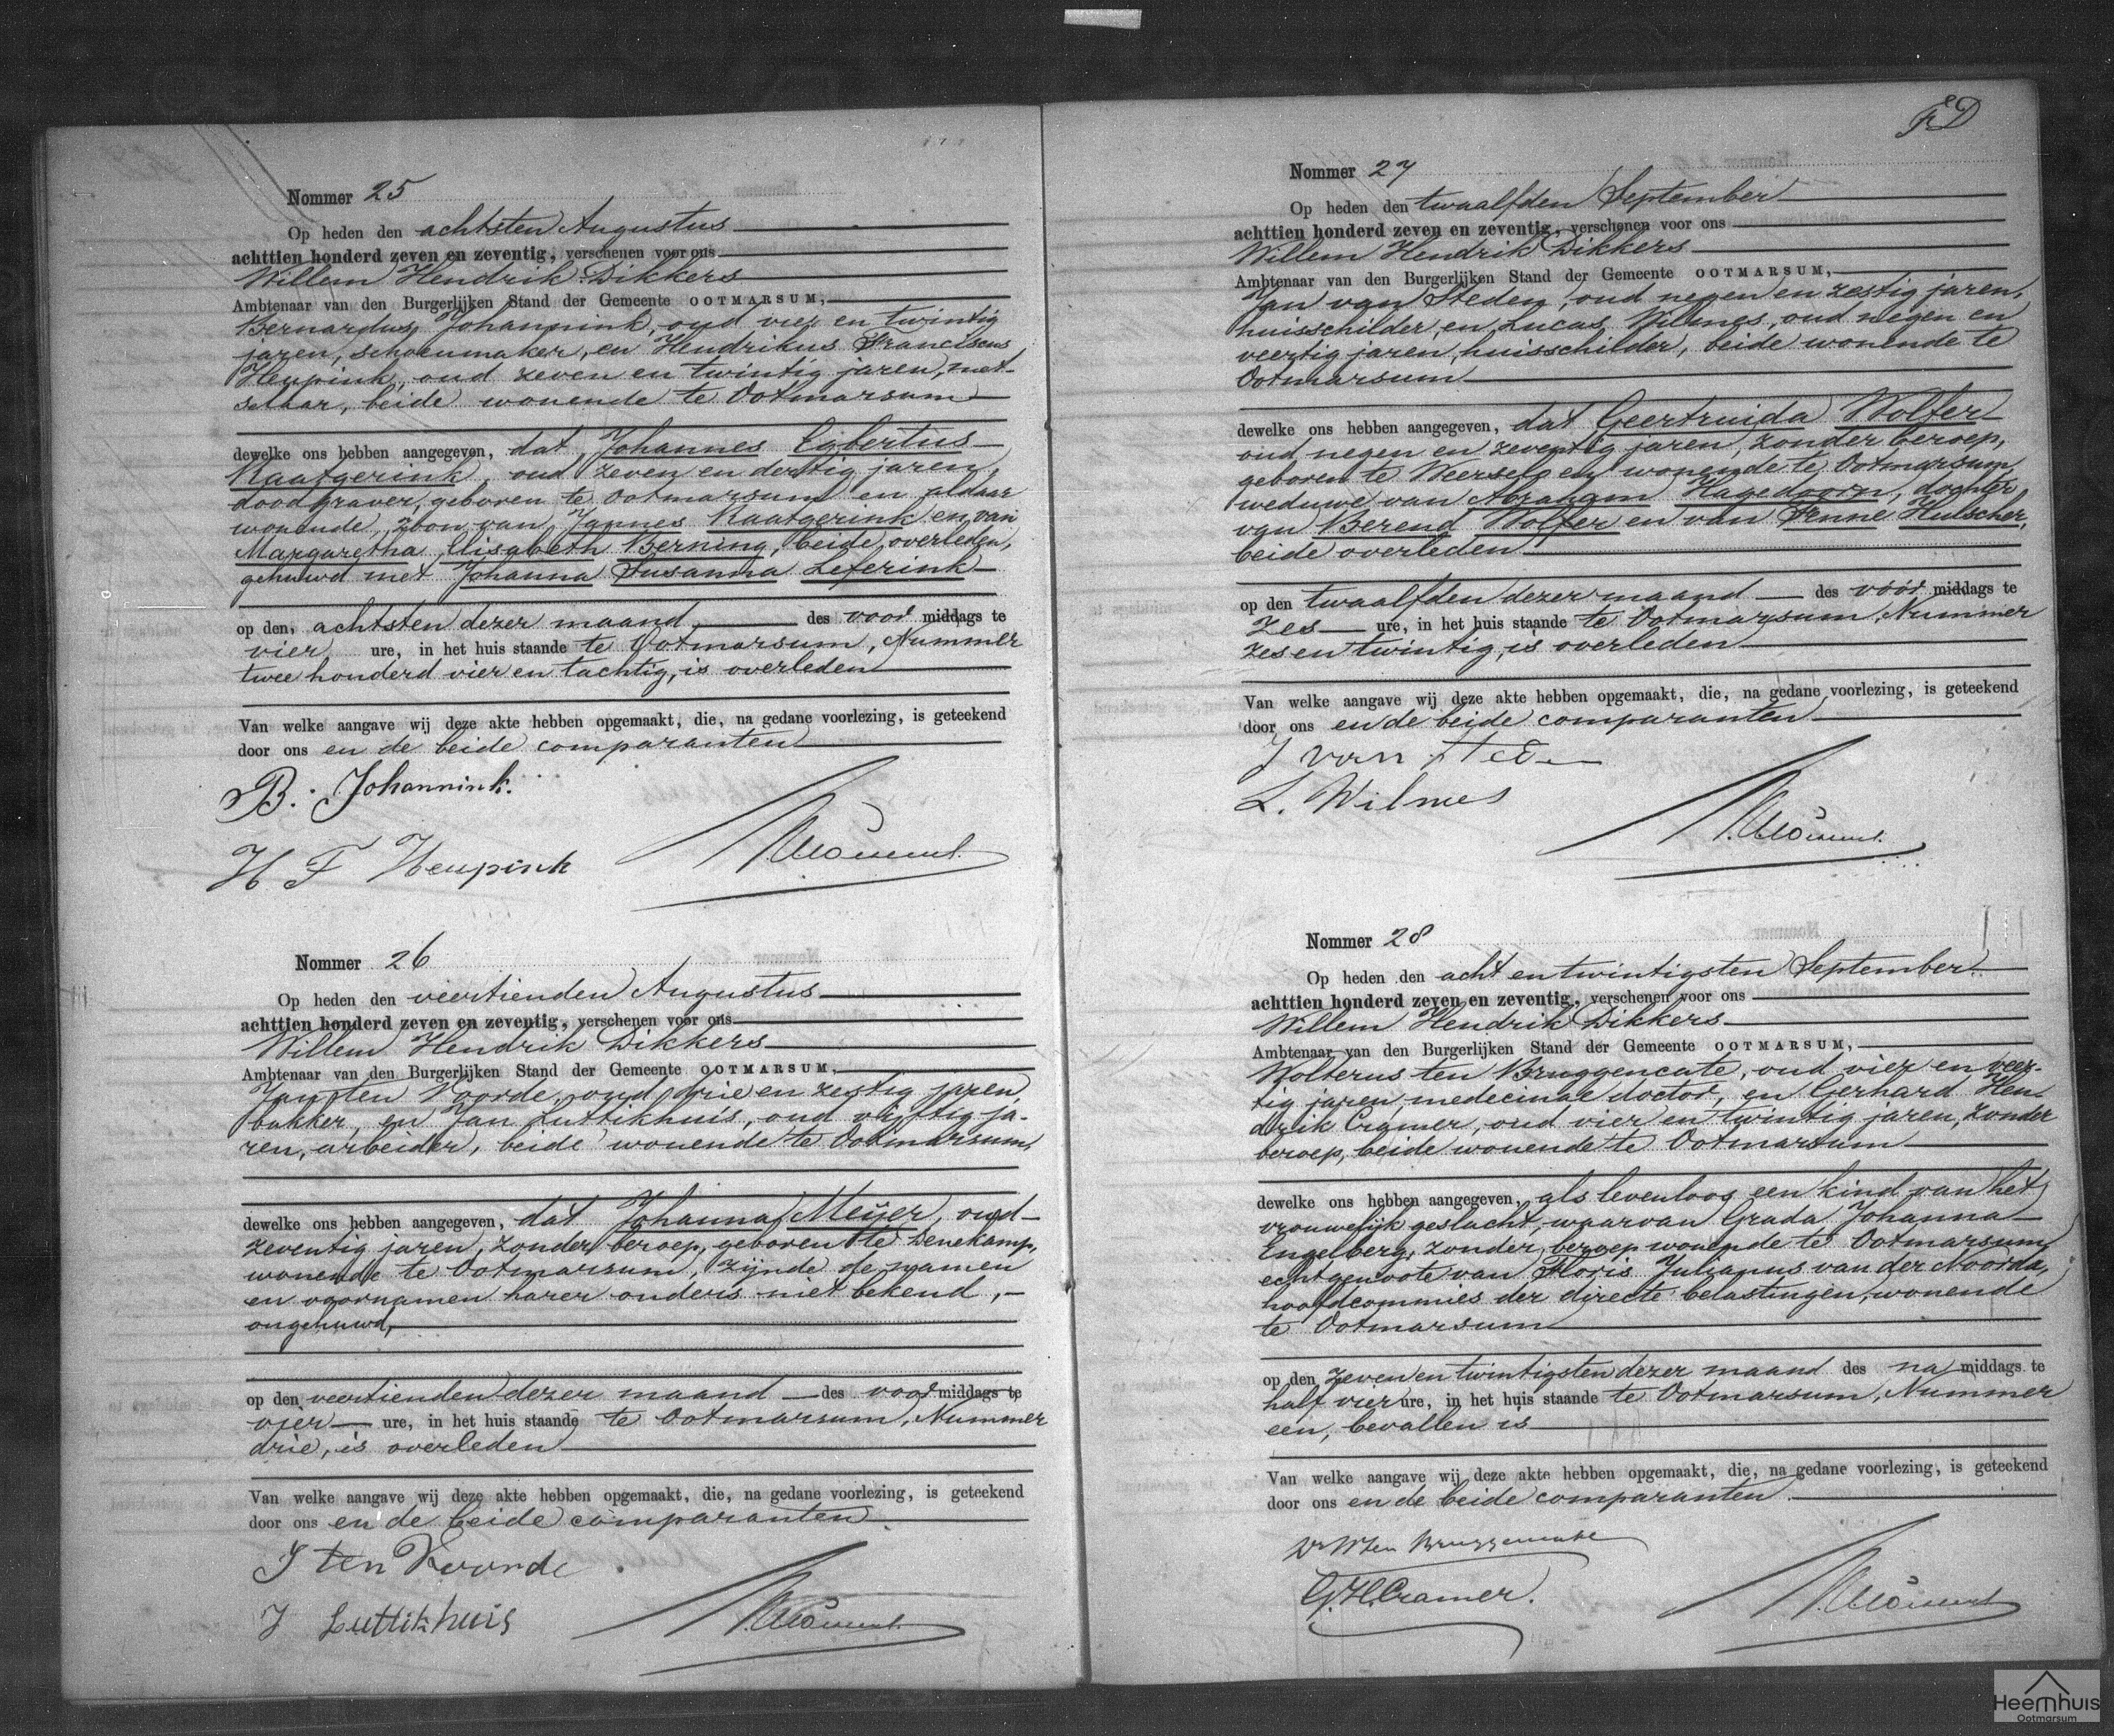 Nommer 25
Op heden den achtsten Augustus
achttien honderd zeven en zeventig, verschenen voor ons
Willem Hendrik Dikkers
Ambtenaar van den Burgerlijken Stand der Gemeente OOTMARSUM,
Bernardus Johannink, oud vier en twintig
jaren, schoenmaker, en Hendrikus Franciscus
Heupink, oud zeven en twintig jaren, met-
selaar, beide wonende te Ootmarsum
dewelke ons hebben aangegeven, dat Johannes Egbertus
Raatgerink, oud zeven en dertig jaren,
doodgraver, geboren te Ootmarsum en aldaar
wonende, zoon van Jannes Raatgerink en van
Margaretha Elisabeth Berning, beide overleden,
gehuwd met Johanna Susanna Leferink
op den achtsten dezer maand des voor middags te
vier ure, in het huis staande te Ootmarsum, Nummer
twee honderd vier en tachtig, is overleden
Van welke aangave wij deze akte hebben opgemaakt, die, na gedane voorlezing, is geteekend
door ons en de beide comparanten
B. Johannink.
H F Heupink
Nommer 26
Op heden den veertienden Augustus
achttien honderd zeven en zeventig, verschenen voor ons
Willem Hendrik Dikkers
Ambtenaar van den Burgerlijken Stand der Gemeente OOTMARSUM,
Jan ten Voorde, oud drie en zestig jaren,
bakker, en Jan Luttikhuis, oud vijftig ja-
ren, arbeider, beide wonende te Ootmarsum,
dewelke ons hebben aangegeven, dat Johanna Meijer, oud
zeventig jaren, zonder beroep, geboren te Denekamp,
wonende te Ootmarsum, zijnde de namen
en voornamen harer ouders niet bekend,
ongehuwd,
op den veertienden dezer maand des voor middags te
vier ure, in het huis staande te Ootmarsum, Nummer
drie, is overleden
Van welke aangave wij deze akte hebben opgemaakt, die, na gedane voorlezing, is geteekend
door ons en de beide comparanten
J ten Voorde
J Luttikhuis
Nommer 27
Op heden den twaalfden September
achttien honderd zeven en zeventig, verschenen voor ons
Willem Hendrik Dikkers
Ambtenaar van den Burgerlijken Stand der Gemeente OOTMARSUM,
Jan van Steden, oud negen en zestig jaren,
huisschilder, en Lucas Wilmes, oud negen en
veertig jaren, huisschilder, beide wonende te
Ootmarsum
dewelke ons hebben aangegeven, dat Geertruida Wolfer
oud negen en zeventig jaren, zonder beroep,
geboren te Weerselo en wonende te Ootmarsum,
weduwe van Abraham Hagedoorn, dochter
van Berend Wolfer en van Fenne Hulscher,
beide overleden
op den twaalfden dezer maand des vóór middags te
zes ure, in het huis staande te Ootmarsum, Nummer
zes en twintig, is overleden
Van welke aangave wij deze akte hebben opgemaakt, die, na gedane voorlezing, is geteekend
door ons en de beide comparanten
J van Steden
L. Wilmes
Nommer 28
Op heden den acht en twintigsten September
achttien honderd zeven en zeventig, verschenen voor ons
Willem Hendrik Dikkers
Ambtenaar van den Burgerlijken Stand der Gemeente OOTMARSUM,
Wolterus ten Bruggencate, oud vier en veer-
tig jaren, medecinae doctor, en Gerhard Hen-
drik Cramer, oud vier en twintig jaren, zonder
beroep, beide wonende te Ootmarsum
dewelke ons hebben aangegeven, als levenloos een kind van het
vrouwelijk geslacht, waarvan Grada Johanna
Engelberg, zonder beroep wonende te Ootmarsum,
echtgenoote van Floris Julianus van der Noorda,
hoofdcommies der directe belastingen, wonende
te Ootmarsum
op den zeven en twintigsten dezer maand des na middags te
half vier ure, in het huis staande te Ootmarsum, Nummer
een, bevallen is
Van welke aangave wij deze akte hebben opgemaakt, die, na gedane voorlezing, is geteekend
door ons en de beide comparanten.
Dr W ten Bruggencate
G. H. Cramer.
Heemhuis
Ootmarsum